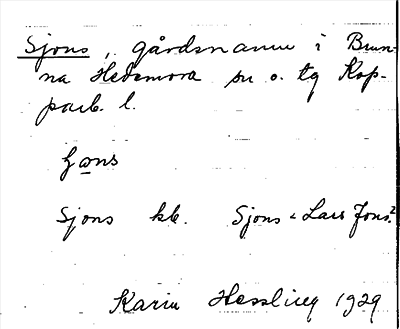 Sjons, gårdsnamn i Brun-
na Hedemora sn o. tg Kop-
parb. l.
fωns
Sjons kb. Sjons < Lars Jons?
Karin Hessling 1929